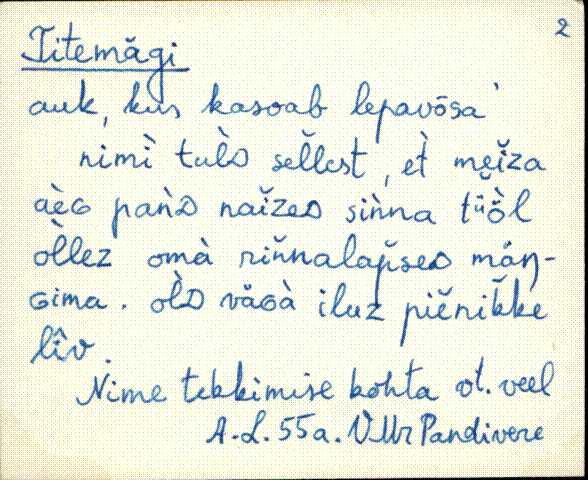 2
Titemägi
auk, kus kasvab lepavõsa
nimi tulD sellest, et mẹiza
aèG panD naizeD sinna tüöl
ollez omà rinnalapseD män-
Gima. olD väGà iluz pienikke
liv.
Nime tekkimise kohta vt. veel
A.L. 55a. VMr Pandivere